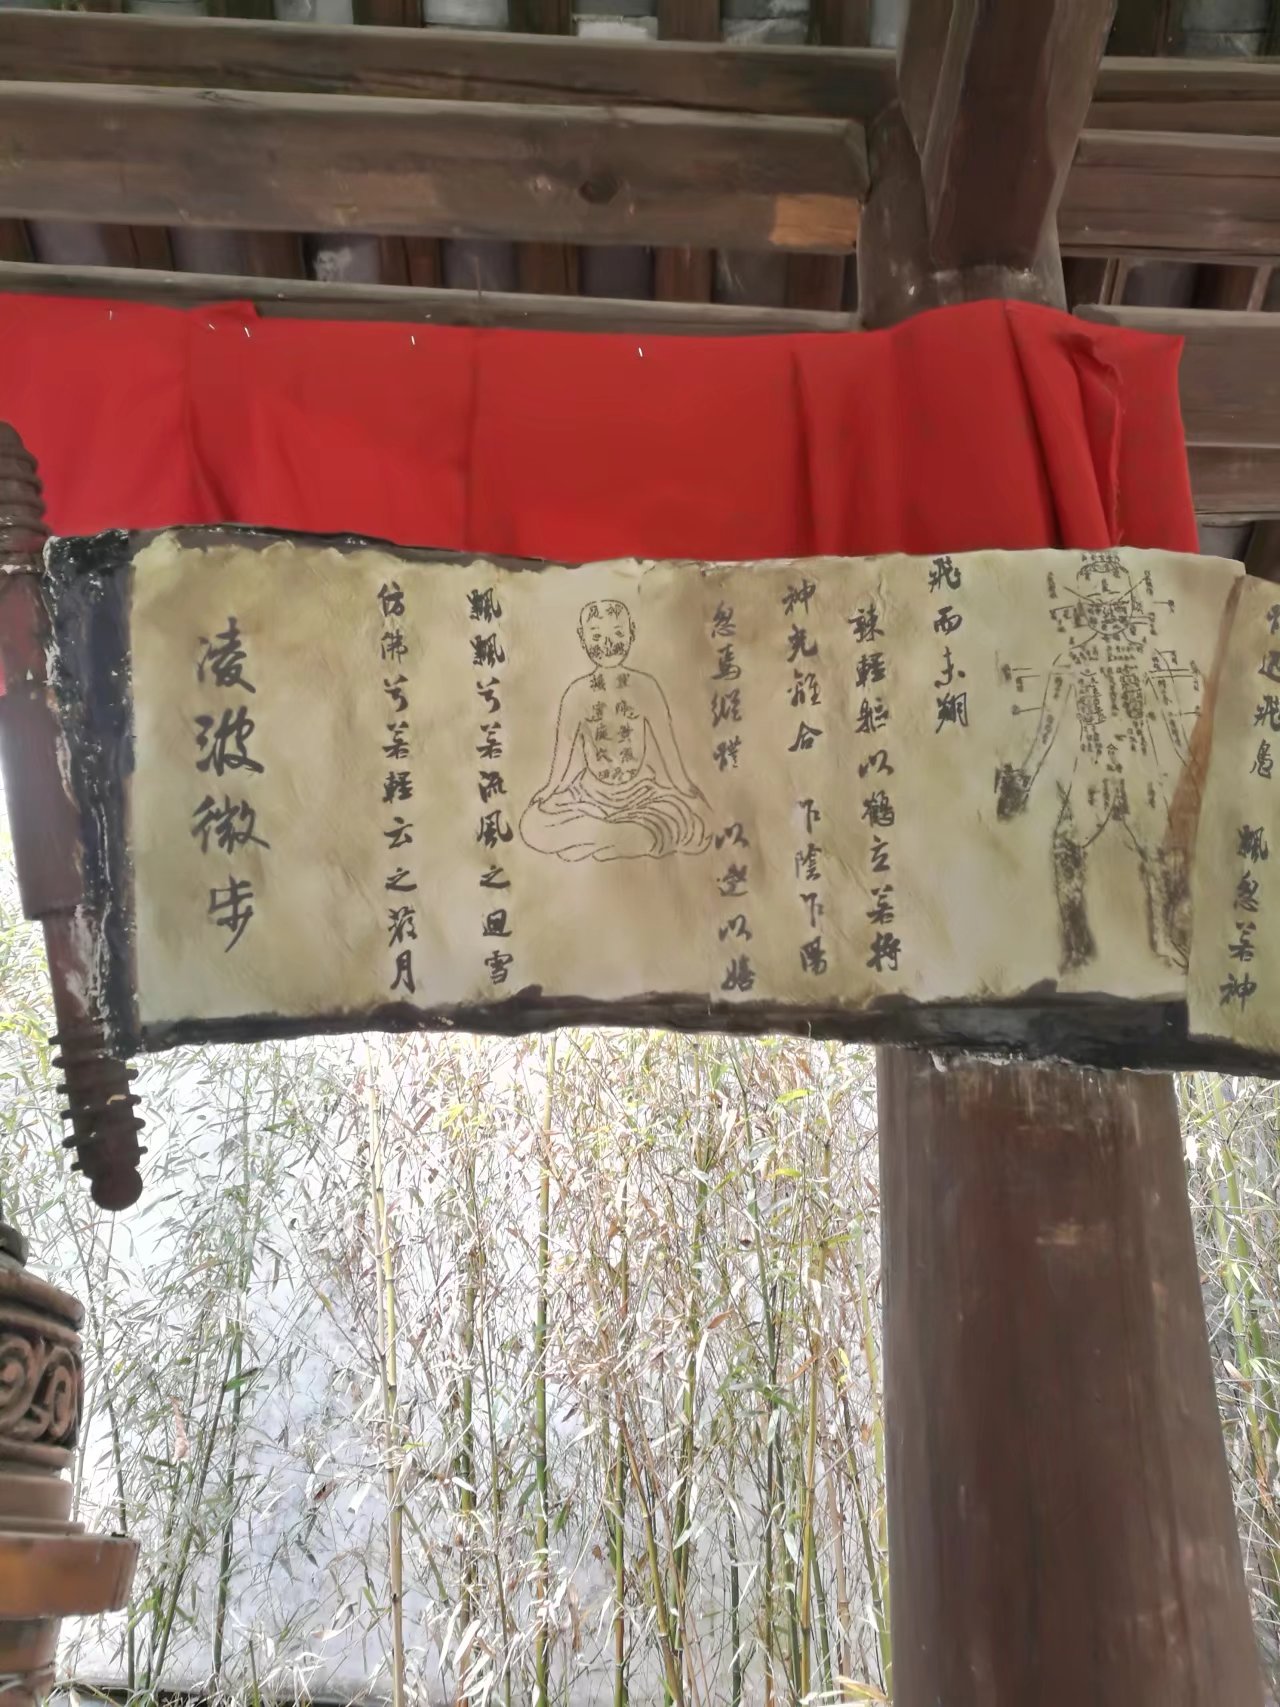 凌波微步
仿佛兮若輕云之蔽月
飄飄兮若流風之回雪
忽焉縱體 以遨以嬉
神光離合 乍陰乍陽
竦輕軀以鶴立若將
飛而未翔
迅飛鳧 飄忽若神